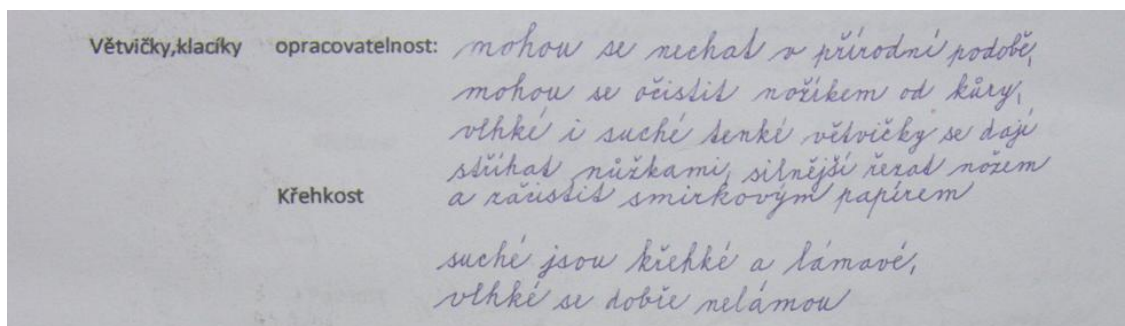 Větvičky,klacíky opracovatelnost: mohou se nechat v přírodní podobě,
mohou se očistit nožíkem od kůry,
vlhké i suché tenké větvičky se dají
stříhat nůžkami, silnější řezat nožem
Křehkost a začistit smirkovým papírem
suché jsou křehké a lámavé,
vlhké se dobře nelámou